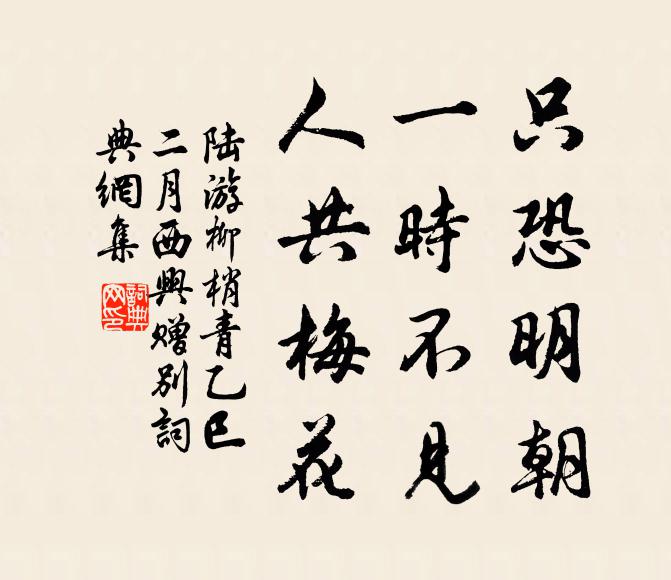 只恐明朝
一時不見
人共梅花
陆游柳梢青乙巳
二月西興赠别詞
典網集
詞典網印